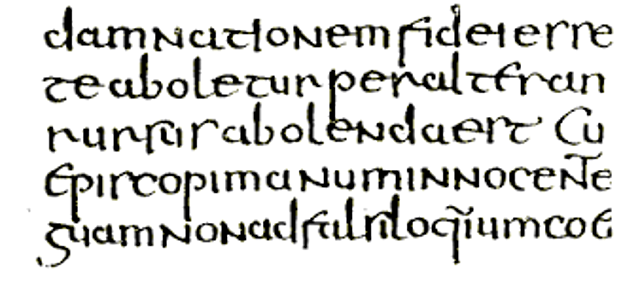 damnationem fidei esse
te aboletur per alteran
rursus abolenda est Cu
Episcopi manum innocentē
guam non ad falsiloq̃ium coe